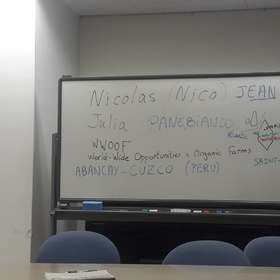 Nicolas (Nico) JEAN
Julia PANEBIANCO
WWOOF
World-Wide Opportunities on Organic Farms
ABANCAY-CUZCO (PERU)
SAINT-